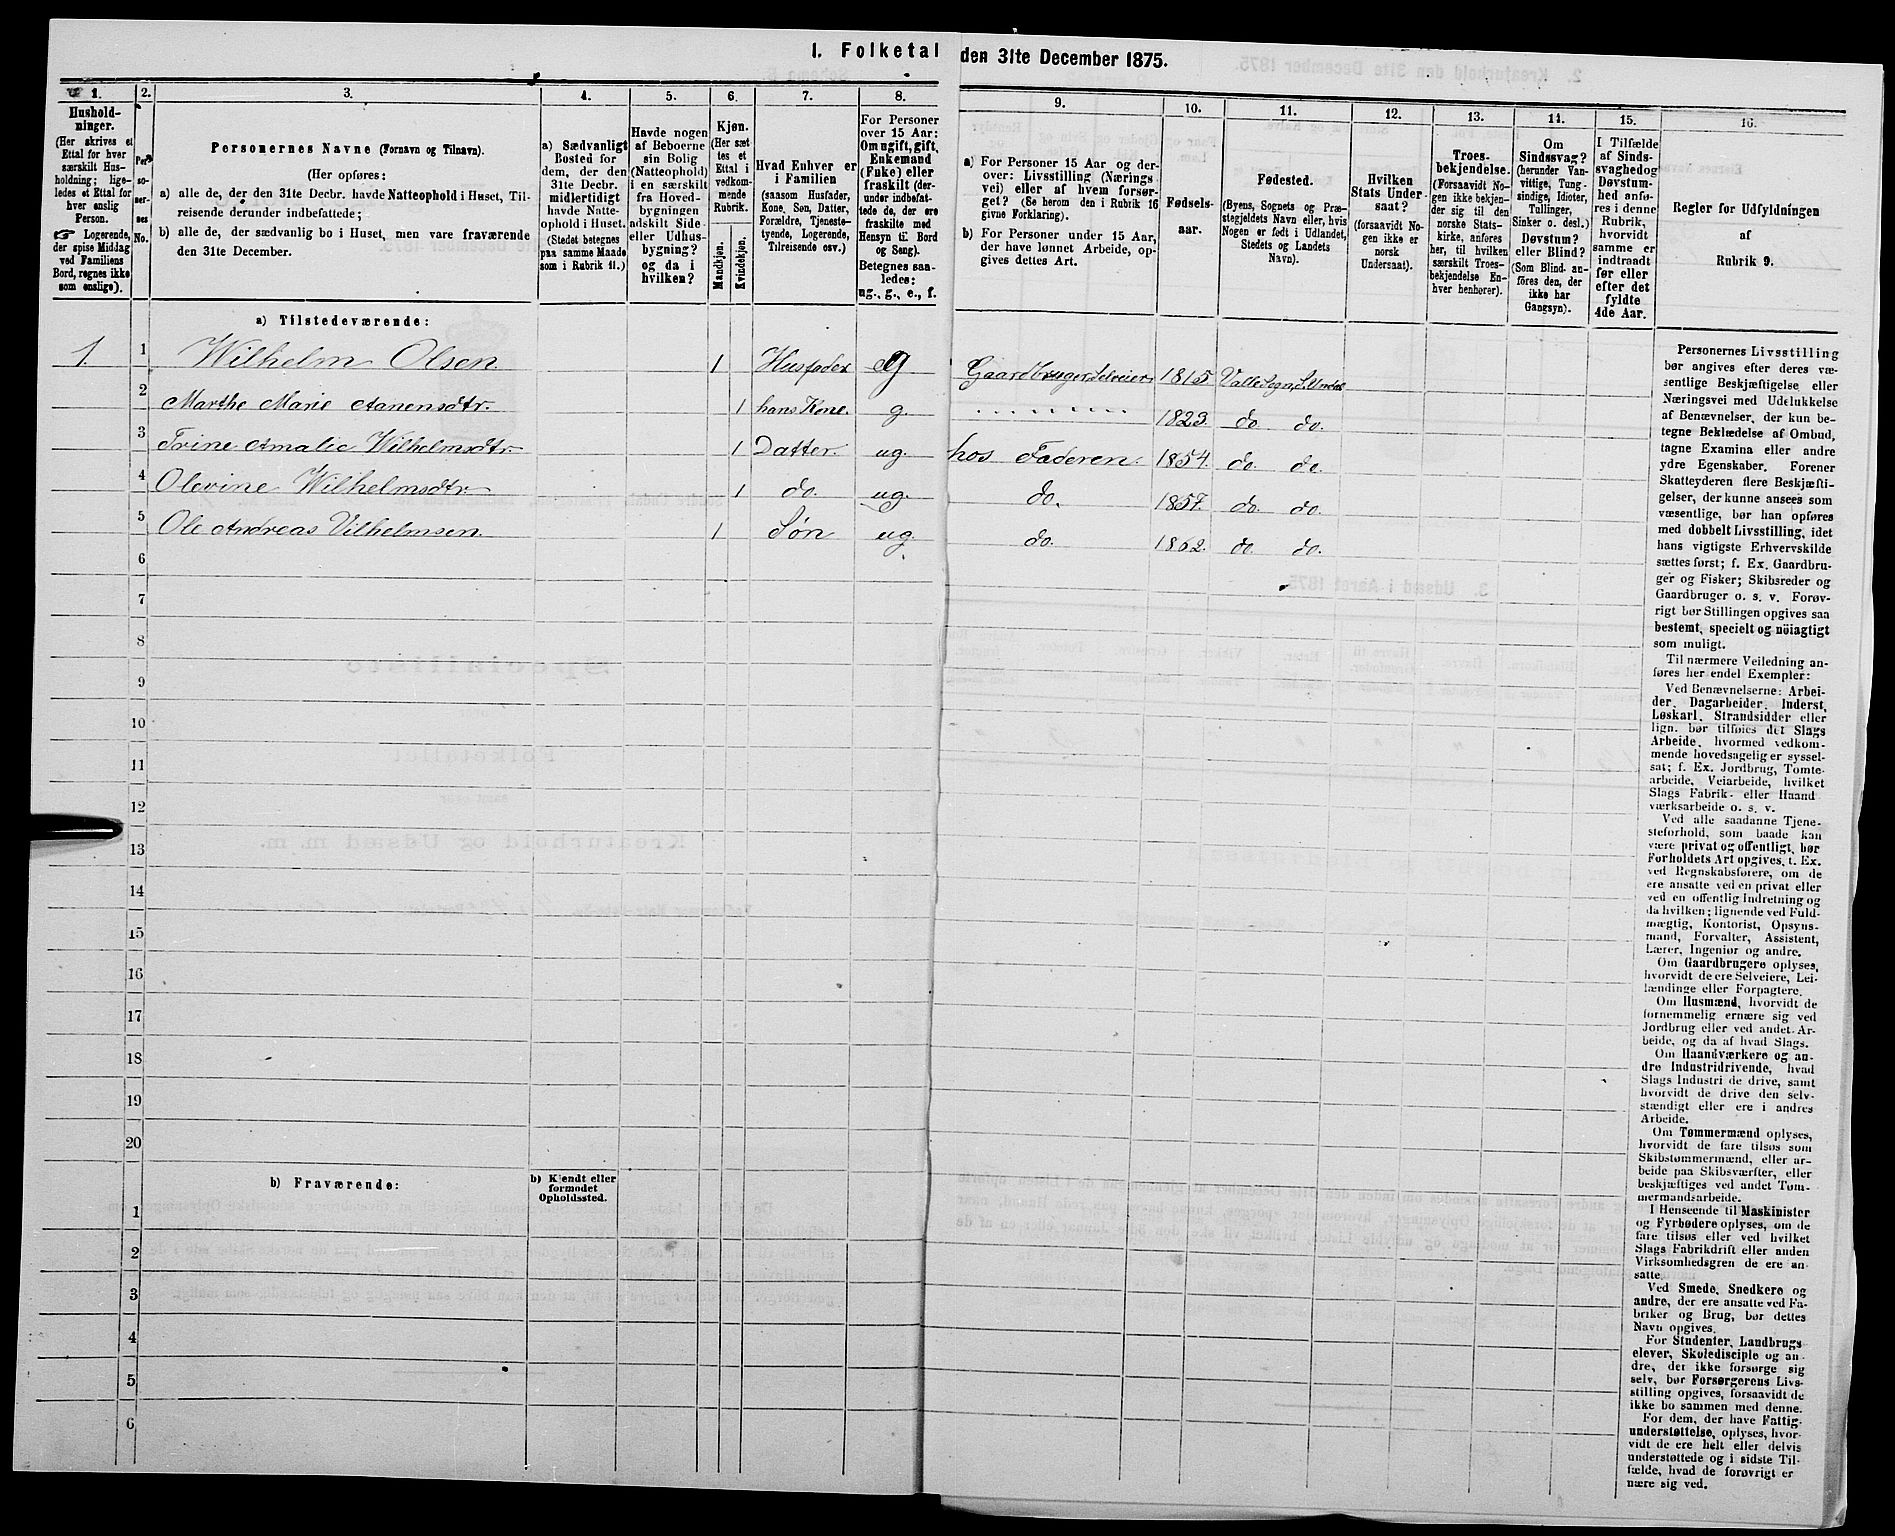 1. Folketal den 31te December 1875.
1. 2. 3. 4. 5. 6. 7. 8. 9. 10. 11. 12. 13. 14. 15. 16.
Hushold-
ninger.
(Her skrives et
Ettal for hver
særskilt Hus-
holdning; lige-
ledes et Ettal for
hver enslig
Person.
☞ Logerende,
der spise Middag
ved Familiens
Bord, regnes ikke
som enslige).
Per-
so-
ner-
nes
No.
Personernes Navne (Fornavn og Tilnavn).
(Her opføres:
a) alle de, der den 31te Decbr. havde Natteophold i Huset, Til-
reisende derunder indbefattede;
b) alle de, der sædvanlig bo i Huset, men vare fraværende
den 31te December.
a) Sædvanligt
Bosted for
dem, der den
31te Decbr.
midlertidigt
havde Natte-
ophold i Huset.
(Stedet betegnes
paa samme Maade
som i Rubrik 11.)
Havde nogen
af Beboerne
sin Bolig
(Natteophold)
i en særskilt
fra Hoved-
bygningen
adskilt Side-
eller Udhus-
bygning?
og da i
hvilken?
Kjøn.
(Her sæt-
tes et
Ettal i
vedkom-
mende
Rubrik.
Mandkjøn.
Kvindekjøn.
Hvad Enhver er
i Familien
(saasom Husfader,
Kone, Søn, Datter,
Forældre, Tjeneste-
tyende, Logerende,
Tilreisende osv.)
For Personer
over 15 Aar:
Om ugift, gift,
Enkemand
(Enke) eller
fraskilt (der-
under indbefat-
tede de, der ere
fraskilte med
Hensyn til Bord
og Seng).
Betegnes saa-
ledes:
ug., g., e., f.
a) For Personer 15 Aar og der-
over: Livsstilling (Nærings-
vei) eller af hvem forsør-
get? (Se herom den i Rubrik 16
givne Forklaring).
b) For Personer under 15 Aar,
der have lønnet Arbeide, op-
gives dettes Art.
Fødsels-
aar.
Fødested.
(Byens, Sognets og Præ-
stegjeldets Navn eller, hvis
Nogen er født i Udlandet,
Stedets og Landets
Navn).
Hvilken
Stats Under-
saat?
(forsaavidt No-
gen ikke er
norsk
Undersaat).
Troes-
bekjendelse.
(Forsaavidt No-
gen ikke bekjen-
der sig til den
norske Stats-
kirke, anføres
her, til hvilken
særskilt Troes-
bekjendelse En-
hver henhører).
Om
Sindssvag?
(herunder Van-
vittige, Tung-
sindige, Idioter,
Tullinger,
Sinker o. desl.)
Døvstum?
eller Blind?
(Som Blind. an-
føres den, der
ikke har
Gangsyn).
I Tilfælde
af Sinds-
svaghed og
Døvstum-
hed anfø-
res i denne
Rubrik,
hvorvidt
samme er
indtraadt
før eller
efter det
fyldte
4de Aar.
Regler for Udfyldningen
af
Rubrik 9.
a) Tilstedeværende:
1. 1 Wilhelm Olsen 1 Husfader g Gaardbruger, Selveier 1815
2 Marthe Marie Aanensdtr. 1 hans Kone. g. 1823. do. do.
3 Trine Amalie Wilhelmsdtr. 1 Datter ug. hos Faderen. 1854. do. do.
4 Olevine Wilhelmsdtr. 1 do. ug. do. 1857. do. do.
5 Ole Andreas Vilhelmsen. 1 Søn ug. do. 1862. do. do.
6
7
8
9
10
11
12
13
14
15
16
17
18
19
20
b) Fraværende:
b) Kjendt eller
formodet
Opholdssted.
1
2
3
4
5
6
Personernes Livsstilling
bør angives efter deres væ-
sentlige Beskjæftigelse eller
Næringsvei med Udelukkelse
af Benævnelser, der kun be-
tegne Beklædelse af Ombud,
tagne Examina eller andre
ydre Egenskaber. Forener
Skatteyderen flere Beskjæfti-
gelser, der kunne ansees som
væsentlige, bør han opføres
med dobbelt Livsstilling, idet
hans vigtigste Erhvervskilde
sættes først; f. Ex. Gaardbru-
ger og Fisker; Skibsreder og
Gaardbruger o. s. v. Forøv-
rigt bør Stillingen opgives saa
bestemt, specielt og nöiagtigt
som muligt.
Til nærmere Veiledning an-
føres her endel Exempler:
Ved Benævnelserne: Arbei-
der, Dagarbeider, Inderst,
Løskarl, Strandsidder eller
lign. bør tilføies det Slags
Arbeide, hvormed vedkom-
mende hovedsagelig er syssel-
sat; f. Ex. Jordbrug, Tomte-
arbeide, Veiarbeide, hvilket
Slags Fabrik- eller Haand
værksarbeide o. s. v.
Ved alle saadanne Tjene-
steforhold, som baade kan
være privat og offentligt, bør
Forholdets Art opgives, t. Ex.
ved Regnskabsførere, om de
ere ansatte ved en privat eller
ved en offentlig Indretning og
da hvilken; lignende ved Fuld-
mægtig, Kontorist, Opsyns-
mand, Forvalter, Assistent,
Lærer, Ingeniør og andre.
Om Gaardbrugere oplyses,
hvorvidt de ere Selveiere, Lei-
lændinge eller Forpagtere.
Om Husmænd, hvorvidt de
fornemmelig ernære sig ved
Jordbrug eller ved andet Ar-
beide, og da af hvad Slags.
Om Haandværkere og an-
dre Industridrivende, hvad
Slags Industri de drive, samt
hvorvidt de drive den selv-
stændigt eller ere i andres
Arbeide.
Om Tømmermænd oplyses,
hvorvidt de fare tilsøs som
Skibstømmermænd, eller ar-
beide paa Skibsværfter, eller
beskjæftiges ved andet Tøm-
mermandsarbeide.
I Henseende til Maskinister
og Fyrbødere oplyses, om de
fare tilsøs eller ved hvilket
Slags Fabrikdrift eller anden
Virksomhedsgren de ere an-
satte.
Ved Smede, Snedkere og
andre, der ere ansatte ved Fa-
briker og Brug, bør dettes
Navn opgives.
For Studenter, Landbrugs
elever, Skoledisciple og an-
dre, der ikke forsørge sig
selv, bør Forsørgerens Livs-
stilling opgives, forsaavidt de
ikke bo sammen med denne.
For dem, der have Fattig-
understøttelse, oplyses, hvor-
vidt de ere helt eller delvis
understøttede og i sidste Til-
fælde, hvad de forøvrigt er
nære sig ved.